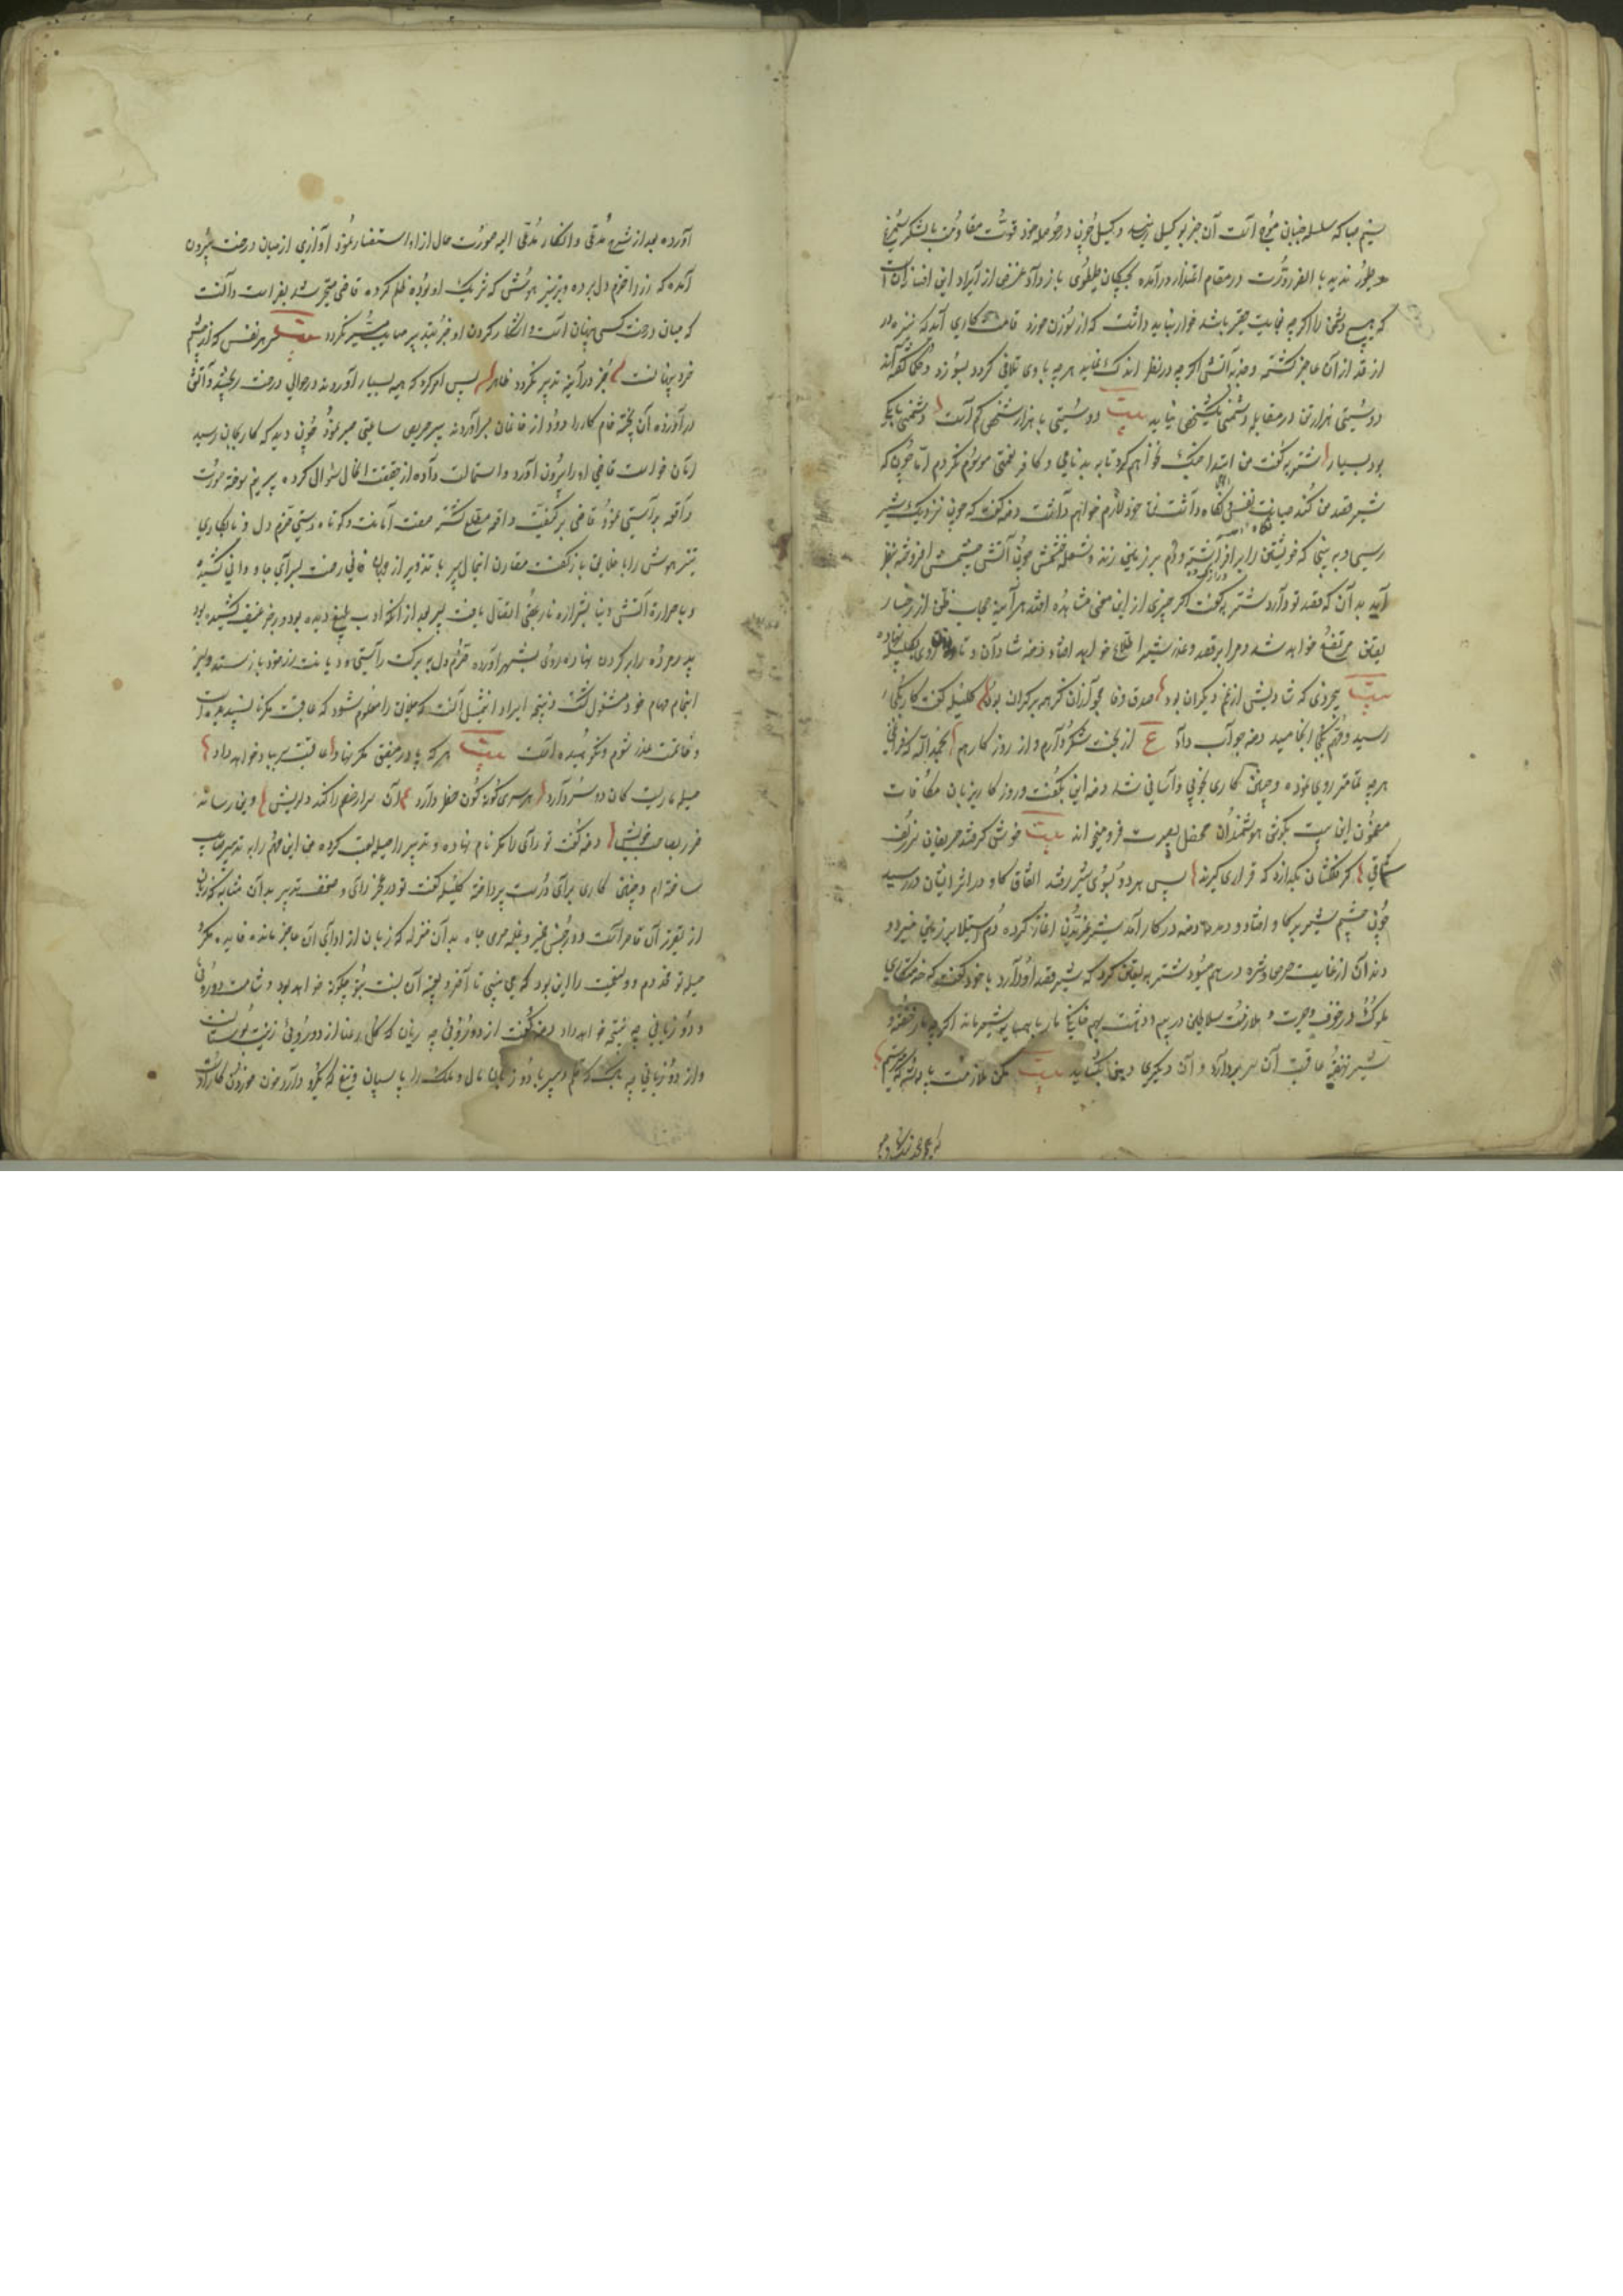 که هیچ دشمن را اگرچه بغایت حقیر باشد خوار نباید داشت که از سوزن خورد قامت کاری آید که نیزه در
از قد از آن عاجز گشته و جذبه آتش اگرچه در نظر اندک نماید هرچه با وی تلاقی کردد بسوزد و حکما گفته اند
دوستی هزار تن در مقابله دشمنی یک شخص نیاید بیت دوستی با هزار شخص کم است دشمنی با یکی
بود بسیار شتربه گفت من ابتدا جنگ نخواهم کرد تا به بدنامی و کافر نعمتی موسوم نکردم اما چون که
شیر قصد من کند صیانت نفس و نگاه داشت ذات خود لازم خواهم دانست دمنه گفت که چون نزدیک شیر
رسی و به بینی که خویشتن را بر افراشته و دم بر زمین زند و شعله خشمش چون آتش چشمش افروخته بنظر
آید بدان که قصد تو دارد شتربه گفت اگر چیزی ازین معنی مشاهده افتد هر آینه حجاب ظن از رخسار
یقین مرتفع خواهد شد و مرا بر قصد و غدر شیر اطلاع خواهد افتاد دمنه شادان و تازه روی بکلیله نهاد
بیت بی خردی که شادیش از غم دیگران بود صدق وفا مجو ازان کز همه بر کران بود کلیله گفت کار بکجا
رسید و مهم بکجا انجامید دمنه جواب داد ع از بخت شکر دارم و از روزگار هم بحمدالله که فراغی
هرچه تمامتر روی نموده و چنین کاری بخوبی و آسانی شد دمنه این بگفت و روزگار بزبان مکافات
مضمون این بیت بگوش هوشمندان محفل بصیرت فرو میخواند بیت خوش گرفتند حریفان سر زلف
ساقی گر فلکشان بگذارد که قراری گیرند پس هر دو بسوی شیر رفتند اتفاق گاو در اثر ایشان در رسید
چون چشم شیر بر گاو افتاد و دمدمه دمنه در کار آمد شیر غریدن آغاز کرده دم استیلا بر زمین میزد و
دندان از غایت حرص و شره در هم میسود شتربه یقین کرد که شیر قصد او دارد با خود گفت که خدمتکاری
ملوک در خوف و حیرت و ملازمت سلاطین در بیم و دهشت بهم خانگی مار و همسایگی شیر ماند اگرچه مار خفته و
شیر نهفته عاقبت آن سر بردارد و آن دیگری دهن بگشاید بیت مکن ملازمت پادشه که میترسم
آورده بعد از شرح مدعی و انکار مدعی الیه صورت حال از او استفسار نمود آوازی از میان درخت بیرون
آمده که زر را خرم دل برده و بر تیزهوش که شریک او بوده ظلم کرده قاضی متحیر شد بفراست دانست
که میان درخت کسی پنهان است و آشکار کردن او جز بتدبیر صایب میسر نکردد بیت هر نقش که از چشم
خرد پنهانست جز در آینه تدبیر نکردد ظاهر پس امر کرد که هیمه بسیار آوردند و در حوالی درخت ریختند و آتش
در آوردند آن پخته خام کار را دود از خانمان برآوردند پیر حریص ساعتی صبر نمود چون دید که کار بجان رسید
امان خواست قاضی او را بیرون آورد و استمالت داده از حقیقت الحال سوال کرده پیر نیم سوخته صورت
واقعه براستی نمود قاضی بر کیفیت واقعه مطلع گشته صفت امانت و کوتاه دستی خرم دل و نابکاری
تیزهوش را با خلایق باز گفت مقارن اینحال پیر با تزویر از جهان فانی رخت بسرای جاودانی کشید
و با حرارت آتش دنیا بشراره نار عقبی اتصال یافت پسر بعد از آنکه ادب بلیغ دیده بود و زجر عنیف کشیده بود
پدر مرده را بر گردن نهاده روی بشهر آورد خرم دل ببرکت راستی و دیانت زر خود باز ستد و به
انجام مهام خود مشغول گشت نتیجه ایراد این مثل آنست که مردمان را معلوم شود که عاقبت مکر ناپسندیده است
و خاتمت غدر شوم و نکوهیده است بیت هر که پا در صفتی مکر نهاد عاقبت سر بباد خواهد داد
حیله ماریست کان دو سر دارد هر سری گونه گون خطر دارد آن سر ار خصم را کند دلریش وین رساند
ضرر بصاحب خویش دمنه گفت تو رای را مکر نام نهاده و تدبیر را حیله لقب کرده من این مهم را به تدبیر صایب
ساخته ام و چنین کاری برای درست پرداخته کلیله گفت تو در عجز رای و ضعف تدبیر بدان مثابه که زبان
از تقریر آن قاصر است و در خبث ضمیر و غلبه حرص جاه بدان منزله که زبان از ادای آن عاجز مانده فایده مکر
حیله تو مخدوم و ولینعمت را این بود که می بینی تا آخر نتیجه آن نسبت بتو چگونه خواهد بود و شامت دورویی
و دو زبانی چه نتیجه خواهد داد دمنه گفت از دورویی چه زیان که گل رعنا از دورویی زینت بوستان است
و از دو زبانی چه باک که قلم دبیر با دو زبان مال و ملک را پاسبان و تیغ که یکرو دارد خون خوردن کار اوست